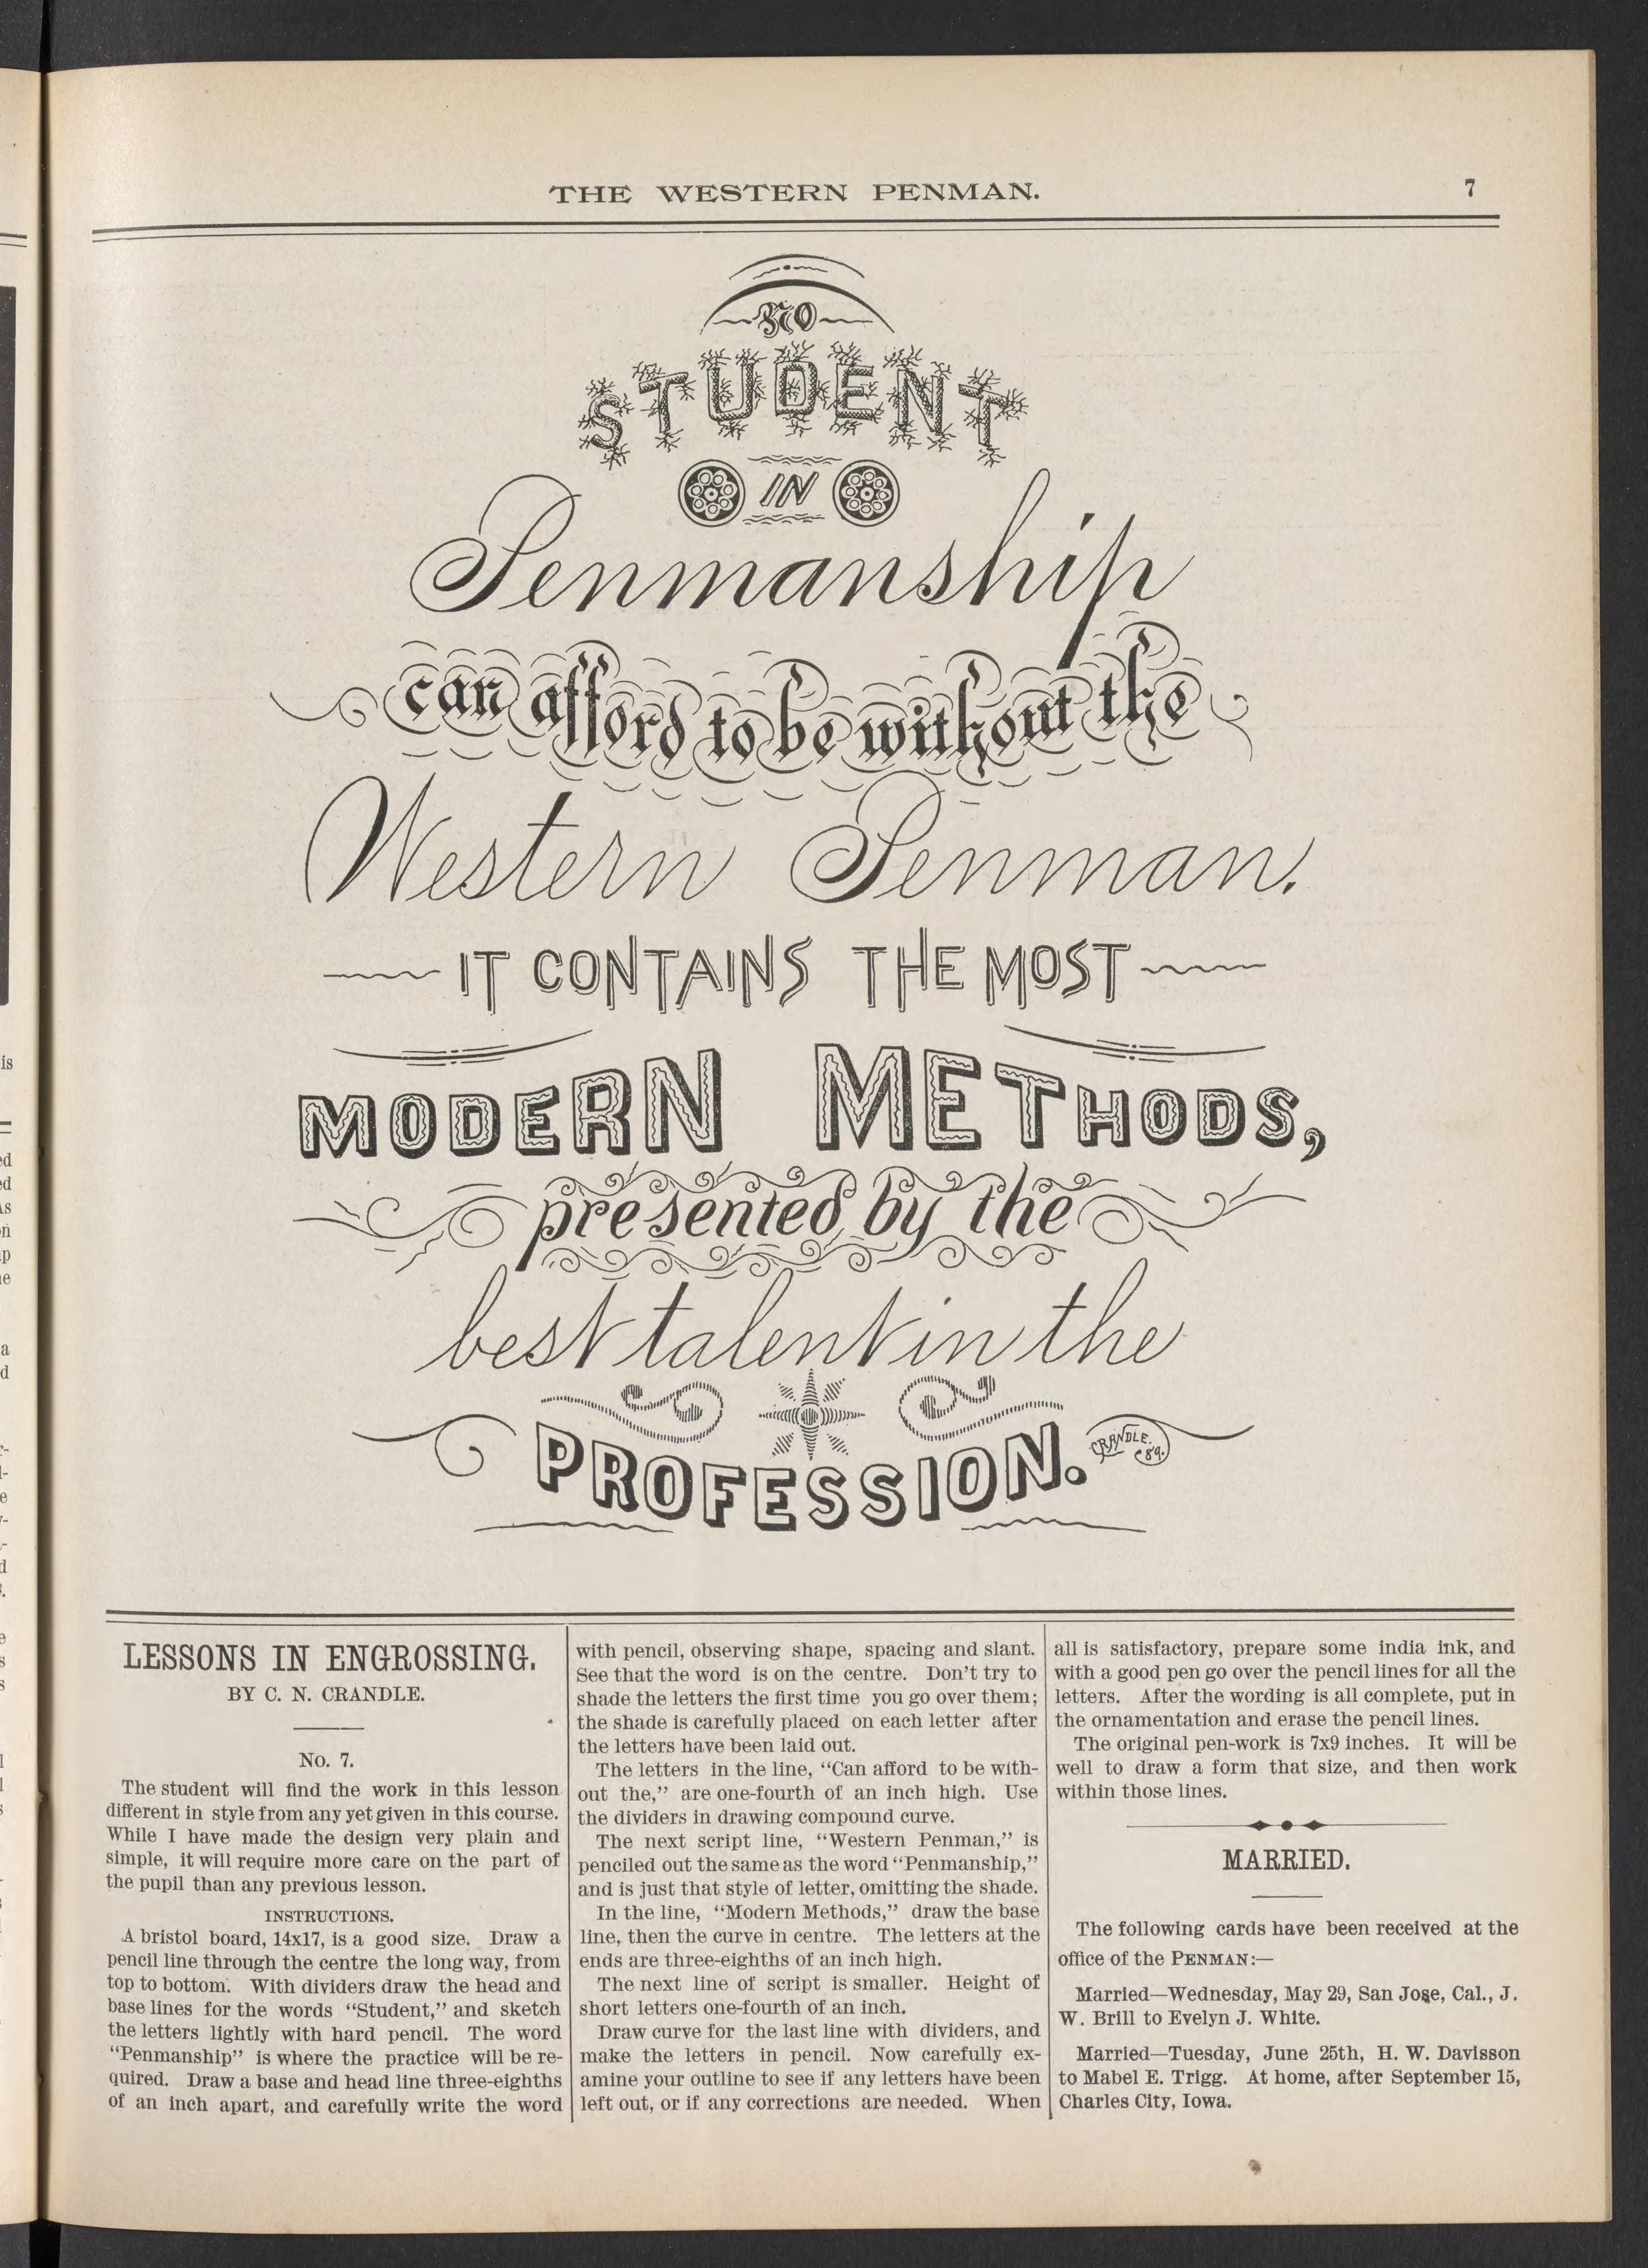 THE WESTERN PENMAN.
7
NO
STUDENT
IN
Penmanship
can afford to be without the
Western Penman.
IT CONTAINS THE MOST
MODERN METHODS,
presented by the
best talent in the
PROFESSION.
CRANDLE.
89.
LESSONS IN ENGROSSING.
BY C. N. CRANDLE.
No. 7.
The student will find the work in this lesson
different in style from any yet given in this course.
While I have made the design very plain and
simple, it will require more care on the part of
the pupil than any previous lesson.
INSTRUCTIONS.
A bristol board, 14x17, is a good size. Draw a
pencil line through the centre the long way, from
top to bottom. With dividers draw the head and
base lines for the words “Student,” and sketch
the letters lightly with hard pencil. The word
“Penmanship” is where the practice will be re-
quired. Draw a base and head line three-eighths
of an inch apart, and carefully write the word
with pencil, observing shape, spacing and slant.
See that the word is on the centre. Don’t try to
shade the letters the first time you go over them;
the shade is carefully placed on each letter after
the letters have been laid out.
The letters in the line, “Can afford to be with-
out the,” are one-fourth of an inch high. Use
the dividers in drawing compound curve.
The next script line, “Western Penman,” is
penciled out the same as the word “Penmanship,”
and is just that style of letter, omitting the shade.
In the line, “Modern Methods,” draw the base
line, then the curve in centre. The letters at the
ends are three-eighths of an inch high.
The next line of script is smaller. Height of
short letters one-fourth of an inch.
Draw curve for the last line with dividers, and
make the letters in pencil. Now carefully ex-
amine your outline to see if any letters have been
left out, or if any corrections are needed. When
all is satisfactory, prepare some india ink, and
with a good pen go over the pencil lines for all the
letters. After the wording is all complete, put in
the ornamentation and erase the pencil lines.
The original pen-work is 7x9 inches. It will be
well to draw a form that size, and then work
within those lines.
MARRIED.
The following cards have been received at the
office of the PENMAN:—
Married—Wednesday, May 29, San Jose, Cal., J.
W. Brill to Evelyn J. White.
Married—Tuesday, June 25th, H. W. Davisson
to Mabel E. Trigg. At home, after September 15,
Charles City, Iowa.